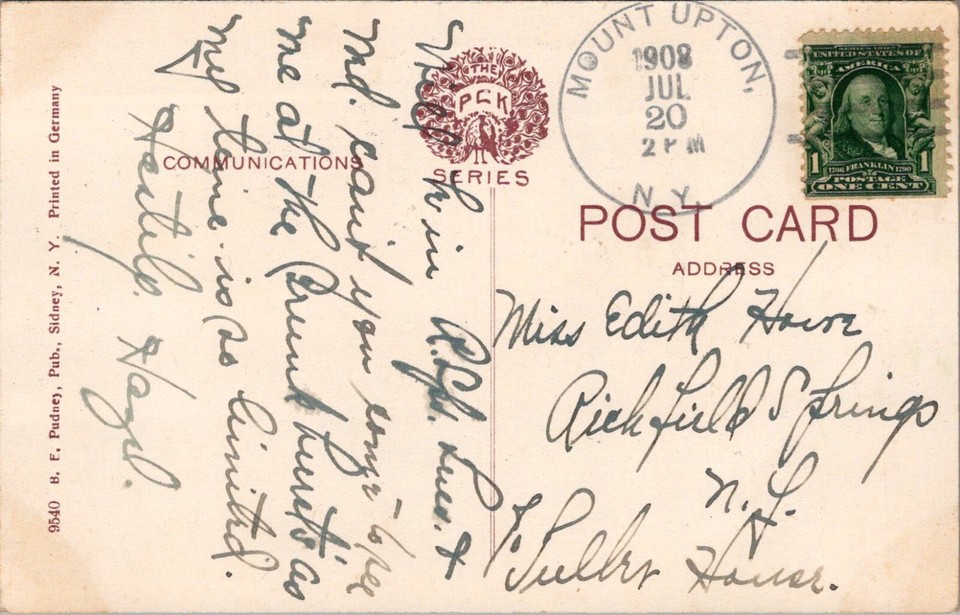 THE
PCK
SERIES
COMMUNICATIONS
POST CARD
ADDRESS
MOUNT UPTON,
1908
JUL
20
2 PM
N. Y.
SERIES 1902
UNITED STATES OF
AMERICA
1 1706 FRANKLIN 1790 1
POSTAGE
ONE CENT
9540 B. E. Pudney, Pub., Sidney, N. Y. Printed in Germany
Shop in &
Md. can't you come to see
me at the Brunt hurst as
my time is so limited.
Hastily. Hazel.
Miss Edith Howe
Richfield Springs
N. Y.
Tuller House.